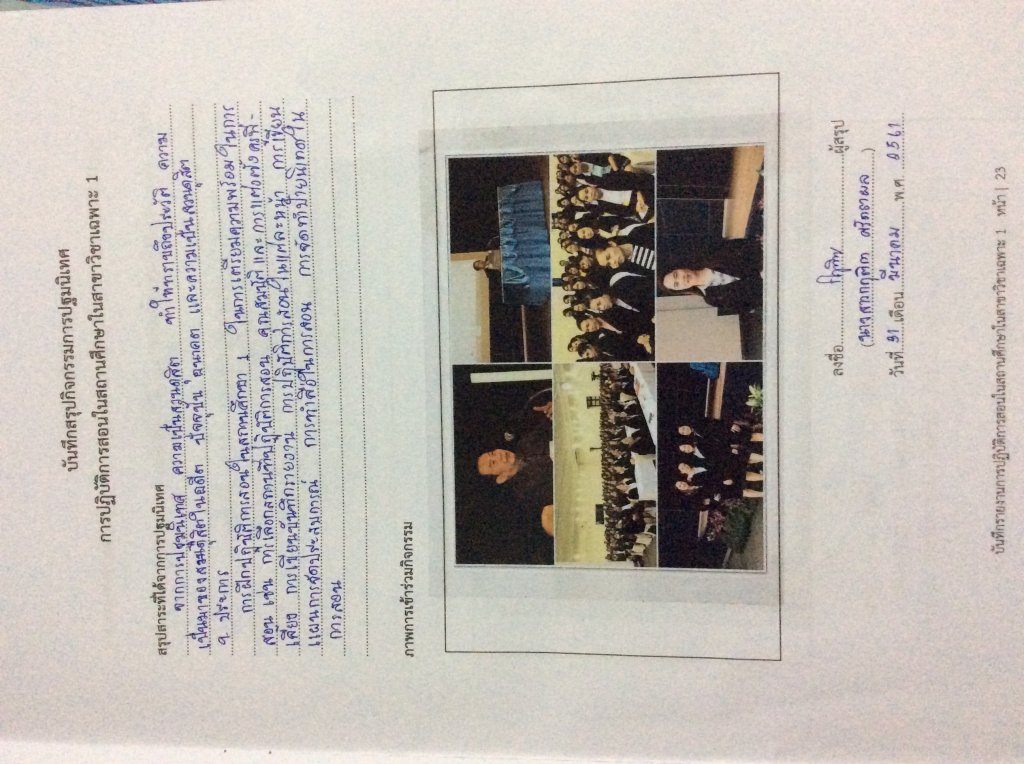 บันทึกสรุปกิจกรรมการปฐมนิเทศ
การปฏิบัติการสอนในสถานศึกษาในสาขาวิชาเฉพาะ 1
สรุปสาระที่ได้จากการปฐมนิเทศ
จากการปฐมนิเทศ ความเป็นสวนดุสิต ทำให้ทราบถึงประวัติ ความ
เป็นมาของสวนดุสิตในอดีต ปัจจุบัน อนาคต และความเป็นสวนดุสิต
9 ประการ
การฝึกปฏิบัติการสอนในสถานศึกษา 1 ในการเตรียมความพร้อมในการ
สอน เช่น การเลือกสถานที่ปฏิบัติการสอน คุณสมบัติ และการแต่งตั้งครูพี่-
เลี้ยง การเขียนบันทึกรายงาน การปฏิบัติการสอนในแต่ละหน้า การเขียน
แผนการจัดประสบการณ์ การทำสื่อในการสอน การจัดทำป้ายนิเทศใน
การสอน
ภาพการเข้าร่วมกิจกรรม
ลงชื่อ ผู้สรุป
(นางสาว )
วันที่ 31 เดือน มีนาคม พ.ศ. 2561
บันทึกรายงานการปฏิบัติการสอนในสถานศึกษาในสาขาวิชาเฉพาะ 1 หน้า | 23